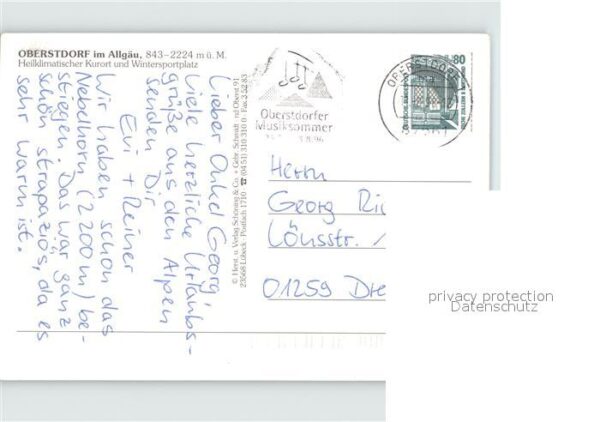 OBERSTDORF im Allgäu, 843–2224 m ü. M.
Heilklimatischer Kurort und Wintersportplatz
Lieber Onkel Georg,
Viele herzliche Urlaubs-
grüße aus den Alpen
senden Dir
Evi + Reiner
Wir haben schon das
Nebelhorn (2200 m) be-
stiegen. Das war ganz
schön strapaziös, da es
sehr warm ist.
© Herst. u. Verlag Schöning & Co. + Gebr. Schmidt
23568 Lübeck · Postfach 1710 · ☎ (04 51) 310 310 0 · Fax 3 52 83
Oberstdorfer
Musiksommer
OBERSTDORF
80
Herrn
Georg
Lönsstr.
01259 Dre
privacy protection
Datenschutz